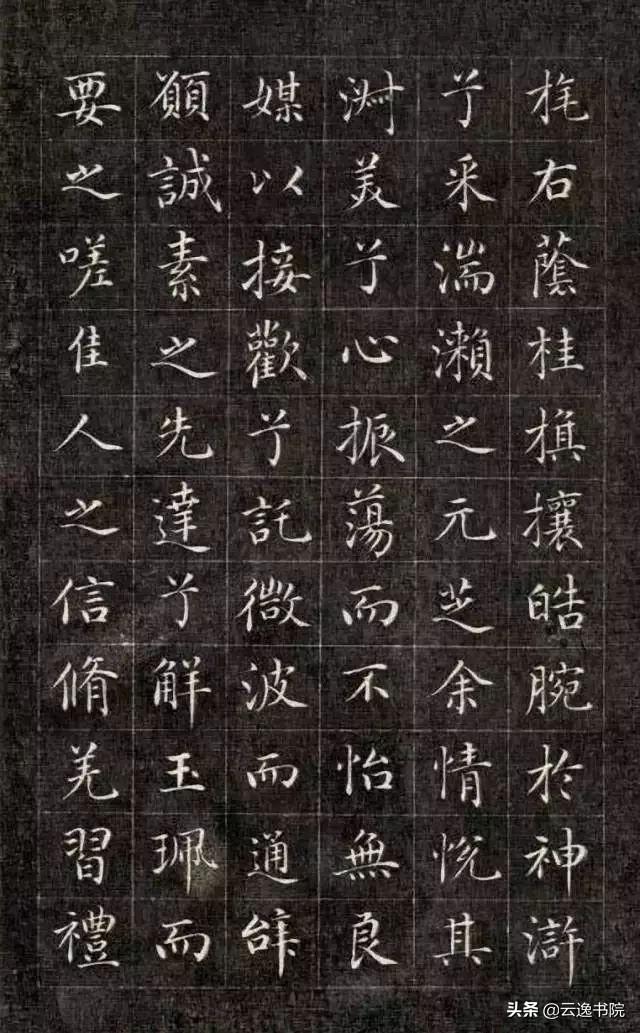 旄右蔭桂旗攘皓腕於神滸
兮采湍瀨之元芝余情悅其
淑美兮心振蕩而不怡無良
媒以接歡兮託微波而通辞
願誠素之先達兮解玉珮而
要之嗟佳人之信脩羌習禮
头条@云逸书院